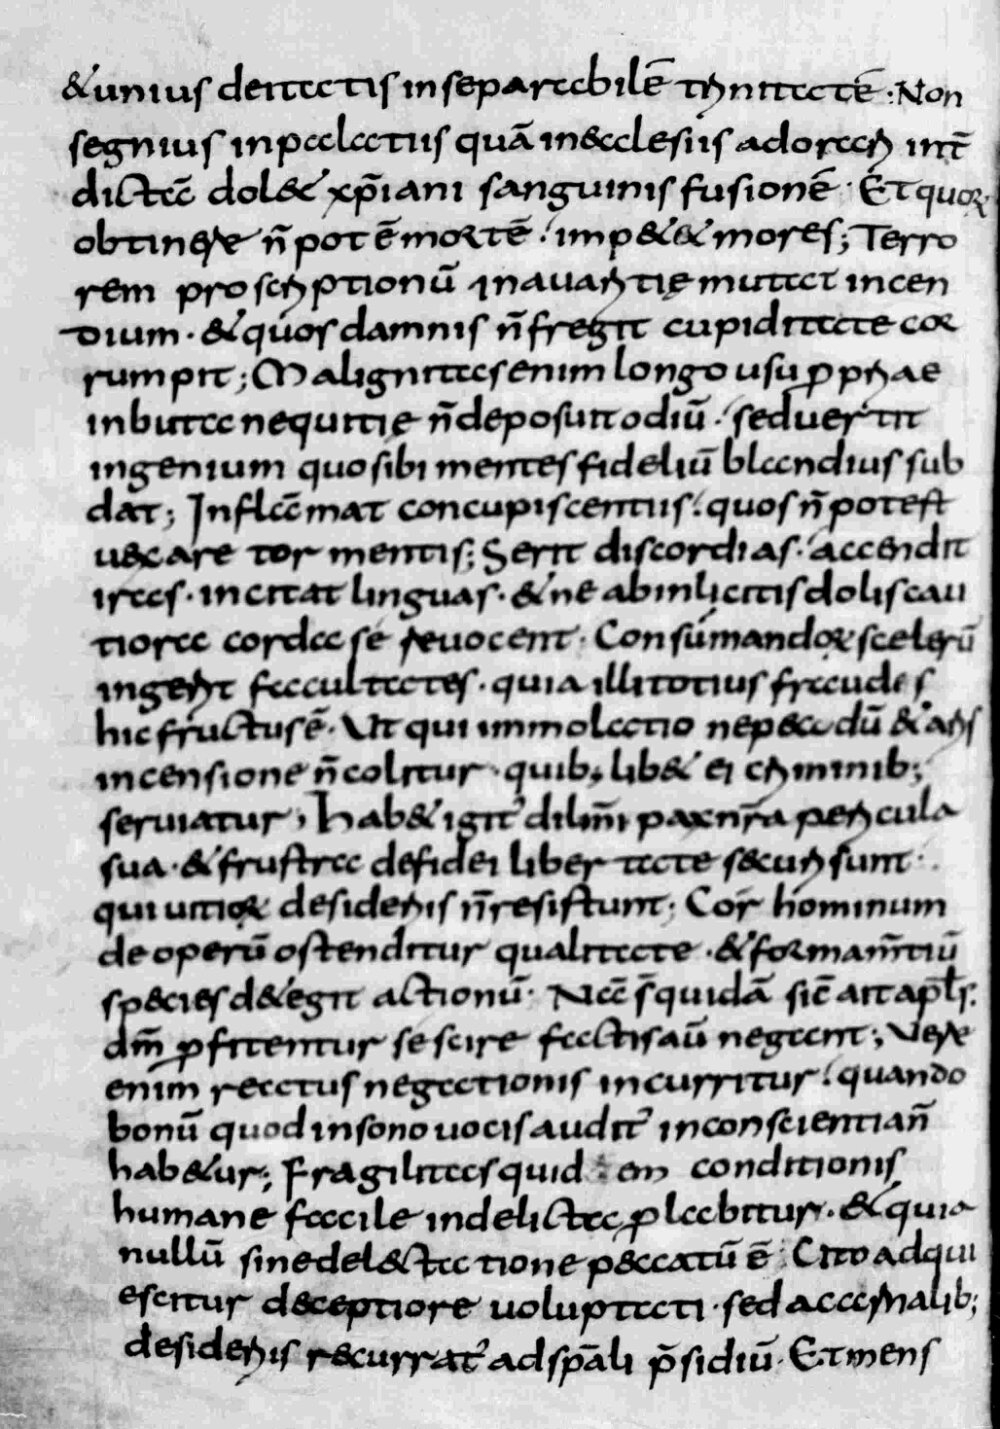 &unius deitatis inseparabilē trinitatē. Non
segnius inpalatiis quā in&cclesiis adorari int̄
dictā dol& xp̄iani sanguinis fusionē. Et quoꝝ
obtinere n̄ potē mortē. imp&& mores; Terro
rem proscriptionū inauaritię mutat incen
dium. & quos damnis n̄ fregit cupiditate cor
rumpit; Malignitas enim longo usu ꝓpriae
inbuta nequitię n̄ deposuit odiū. sed uertit
ingenium quo sibi mentes fideliū blandius sub
dat; Inflāmat concupiscentiis. quos n̄ potest
uexare tormentis; Serit discordias. accendit
iras. incitat linguas. & ne abinlicitis dolis cau
tiora corda se reuocent. Consūmandoꝝ scelerū
ingerit facultates. quia illi totius fraudis
hic fructus ē. Ut qui immolatio ne p&cudū & aris
incensione n̄ colitur. quib; lib& ei criminib;
seruiatur; Hab& igit̉ dilm̄i pax nr̄a pericula
sua. & frustra defidei libertate securi sunt.
qui uitioꝝ desideriis n̄ resistunt; Cor hominum
de operū ostenditur qualitate. & formam̄tiū
species d&egit actionū. Nā s̄ quidā sic̄ ait apl̄s.
dm̄ ꝓfitentur se scire factis aū negant; Vere
enim reatus negationis incurritur. quando
bonū quod insono uocis audit̉ inconscientia n̄
hab&ur; Fragilitas quidem conditionis
humane facile indelicta ꝓlabitur. & quia
nullū sine delectatione peccatū ē. Cito adqui
escitur deceptiore uoluptati. sed acarnalib;
desideriis recurrat̉ ad sp̄ali p̄sidiū. Et mens